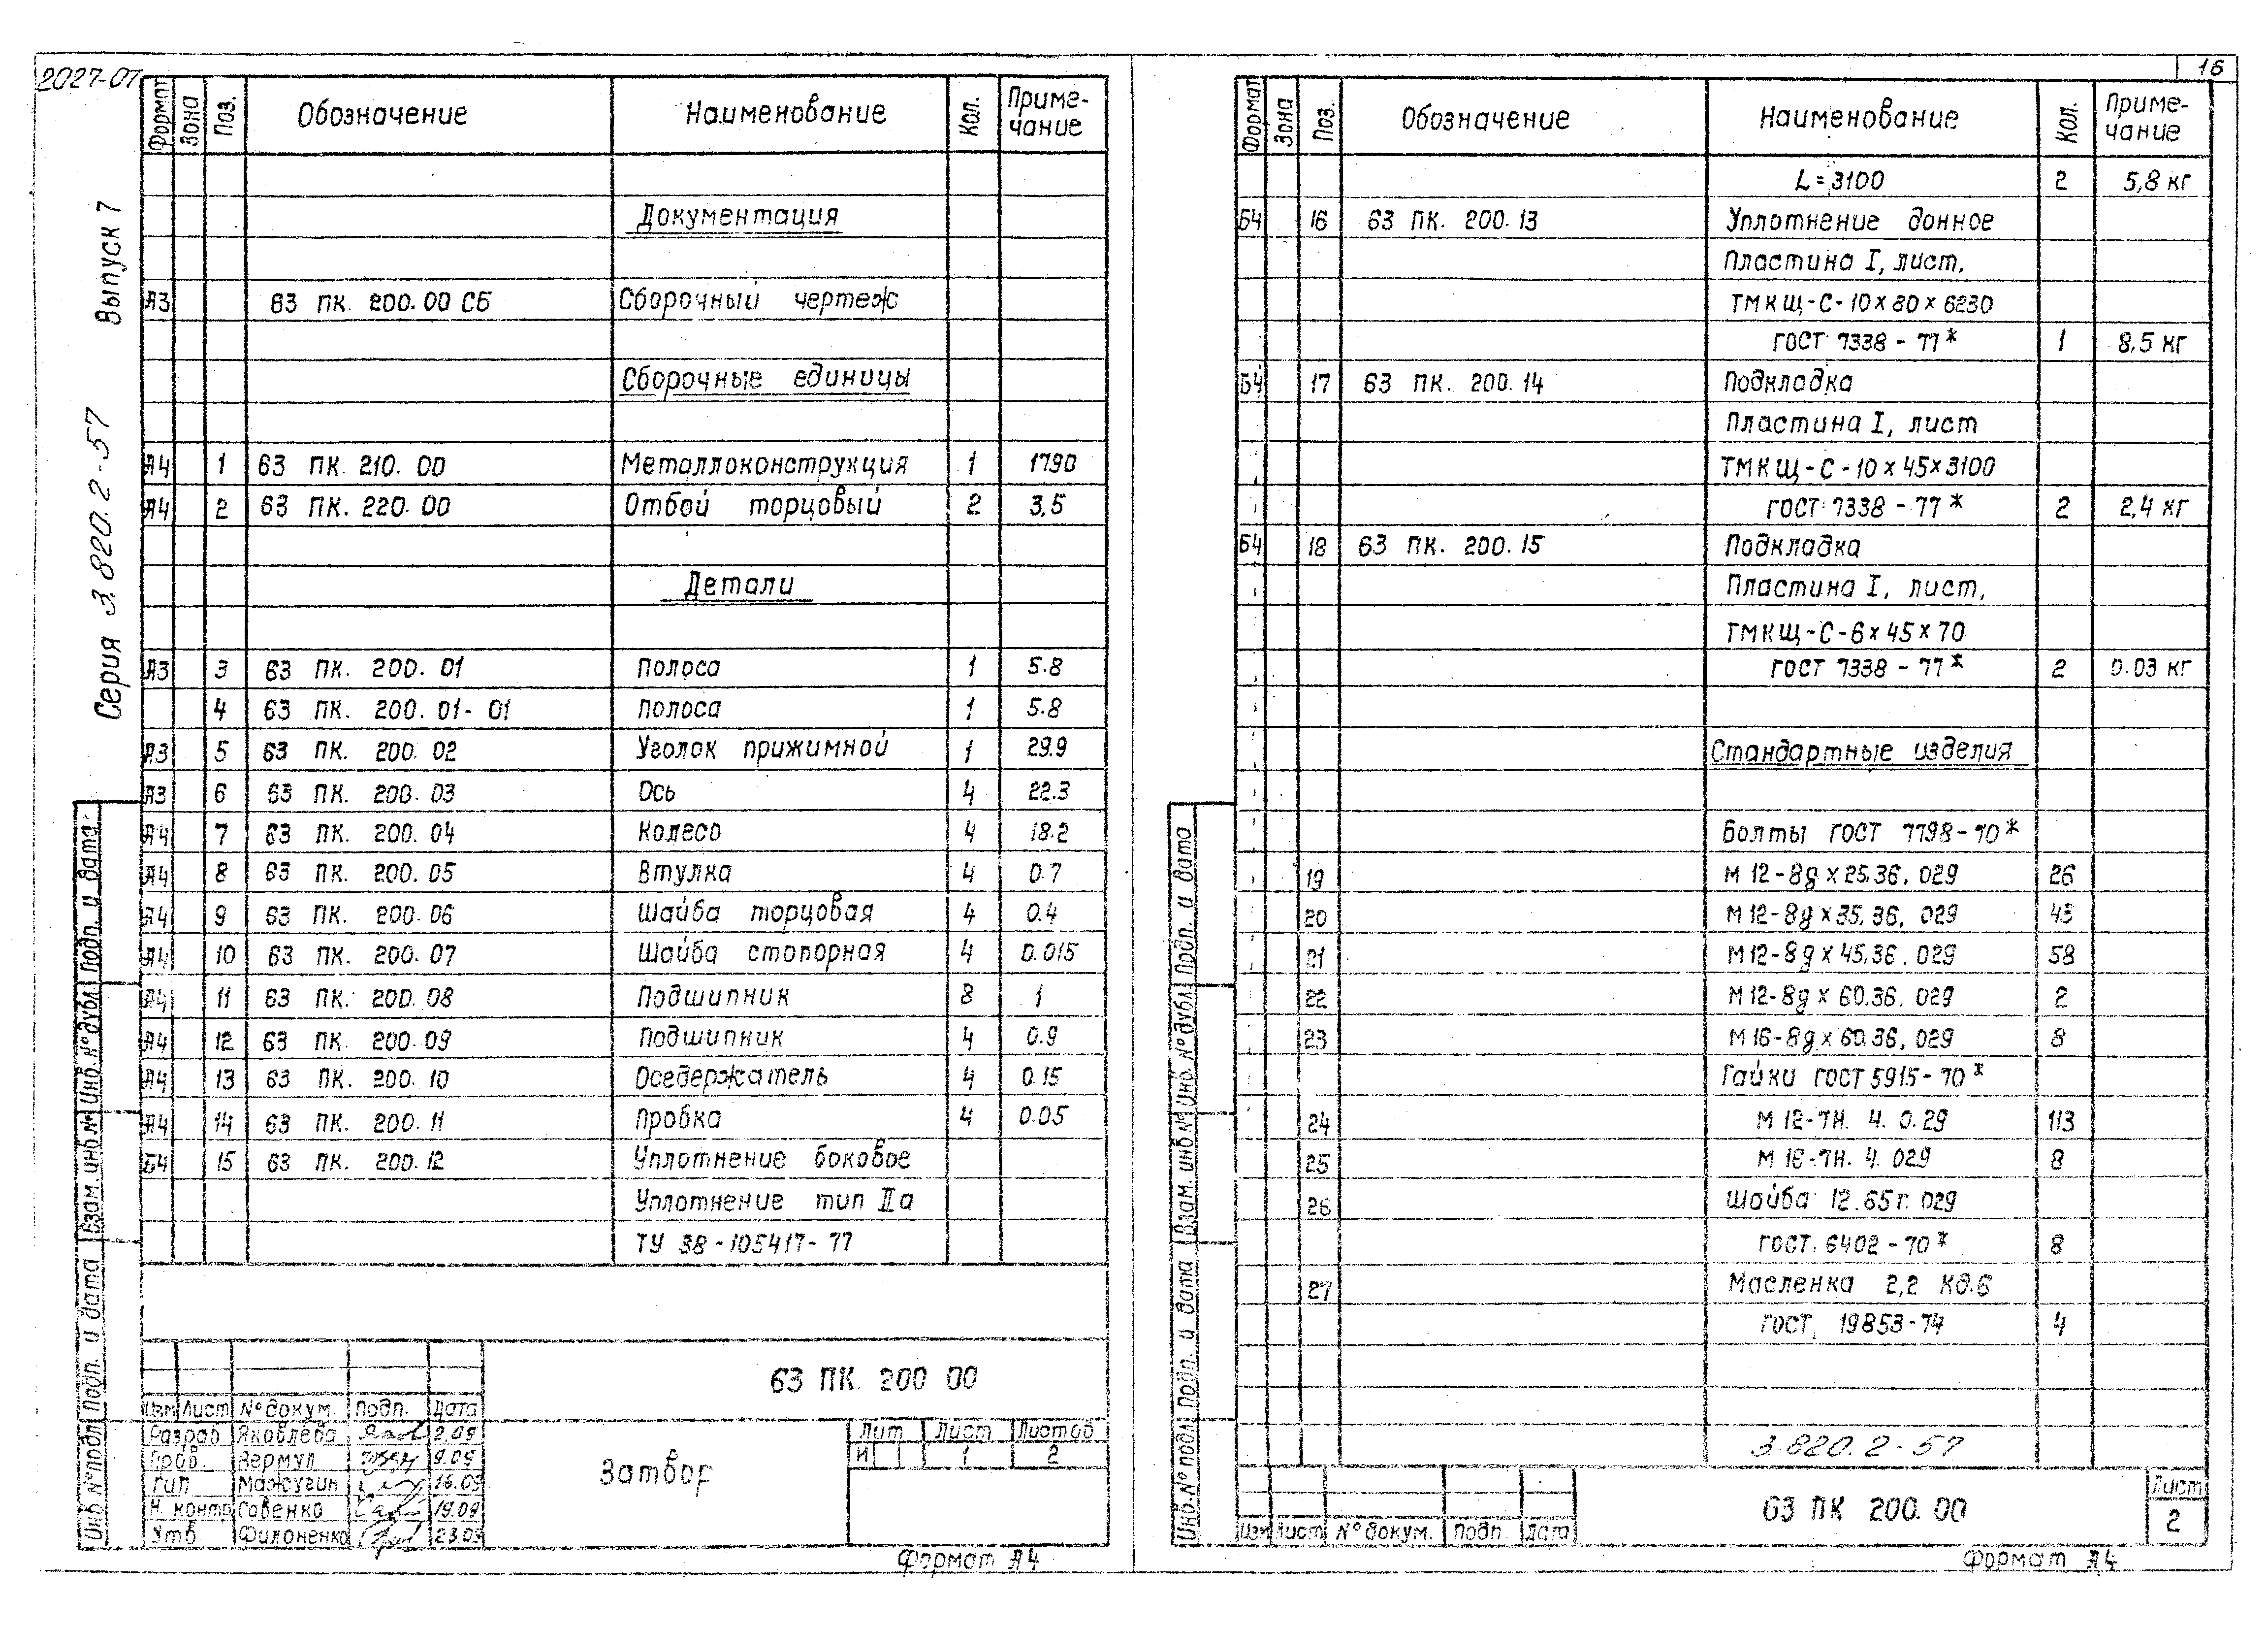 2027-07
Выпуск 7
Серия 3.820.2-57
Формат Зона Поз. Обозначение Наименование Кол. Приме-чание
Документация
А3 63 ПК. 200.00 СБ Сборочный чертеж
Сборочные единицы
А4 1 63 ПК. 210. 00 Металлоконструкция 1 1790
А4 2 63 ПК. 220. 00 Отбой торцовый 2 3,5
Детали
А3 3 63 ПК. 200. 01 Полоса 1 5.8
4 63 ПК. 200. 01-01 Полоса 1 5.8
А3 5 63 ПК. 200. 02 Уголок прижимной 1 29.9
А3 6 63 ПК. 200. 03 Ось 4 22.3
А4 7 63 ПК. 200. 04 Колесо 4 18.2
А4 8 63 ПК. 200. 05 Втулка 4 0.7
А4 9 63 ПК. 200. 06 Шайба торцовая 4 0.4
А4 10 63 ПК. 200. 07 Шайба стопорная 4 0.015
А4 11 63 ПК. 200. 08 Подшипник 8 1
А4 12 63 ПК. 200. 09 Подшипник 4 0.9
А4 13 63 ПК. 200. 10 Оседержатель 4 0.15
А4 14 63 ПК. 200. 11 Пробка 4 0.05
Б4 15 63 ПК. 200. 12 Уплотнение боковое
Уплотнение тип IIа
ТУ 38-105417-77
Инв. № подл. Подп. и дата Взам. инв № Инв. № дубл. Подп. и дата
63 ПК 200 00
Изм Лист № докум. Подп. Дата
Разраб Яковлева 2.09
Пров. Вермул 9.09
Гип Мажугин 16.09
Н. контр Савенко 19.09
Утв. Филоненко 23.09
Затвор
Лит Лист Листов
И 1 2
Формат А4
16
Формат Зона Поз. Обозначение Наименование Кол. Приме-чание
L=3100 2 5,8 кг
Б4 16 63 ПК. 200. 13 Уплотнение донное
Пластина I, лист,
ТМКЩ-С-10х80х6230
ГОСТ 7338-77* 1 8,5 кг
Б4 17 63 ПК. 200. 14 Подкладка
Пластина I, лист
ТМКЩ-С-10х45х3100
ГОСТ 7338-77* 2 2,4 кг
Б4 18 63 ПК. 200. 15 Подкладка
Пластина I, лист,
ТМКЩ-С-6х45х70
ГОСТ 7338-77* 2 0.03 кг
Стандартные изделия
Болты ГОСТ 7798-70*
19 М 12-8g х 25.36. 029 26
20 М 12-8g х 35. 36. 029 45
21 М 12-8g х 45.36. 029 58
22 М 12-8g х 60.36. 029 2
23 М 16-8g х 60.36. 029 8
Гайки ГОСТ 5915-70*
24 М 12-7Н. 4. 0.29 113
25 М 16-7Н. 4. 029 8
26 Шайба 12.65г. 029
ГОСТ. 6402-70* 8
27 Масленка 2,2 Кд.6
ГОСТ 19853-74 4
3.820.2-57
Инв. № подл. Подп. и дата Взам. инв № Инв. № дубл. Подп. и дата
Изм Лист № докум. Подп. Дата
63 ПК 200.00
Лист
2
Формат А4